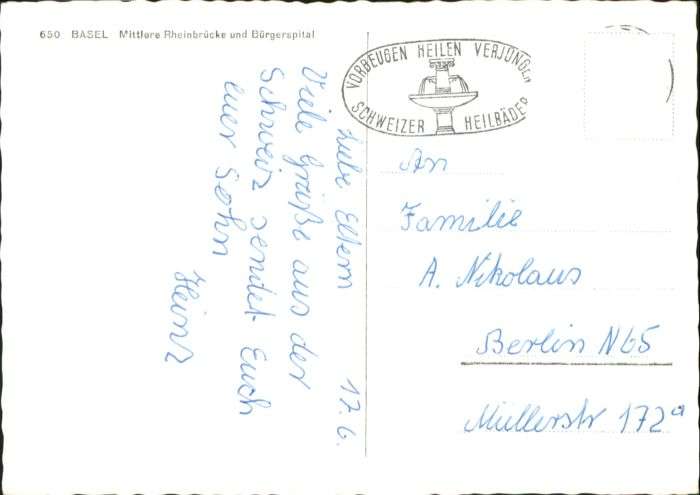 650 BASEL Mittlere Rheinbrücke und Bürgerspital
VORBEUGEN HEILEN VERJÜNGEN
SCHWEIZER HEILBÄDER
17.6.
Liebe Eltern
Viele Grüße aus der
Schweiz sendet Euch
euer Sohn
Heinz
An
Familie
A. Nikolaus
Berlin N65
Müllerstr 172a